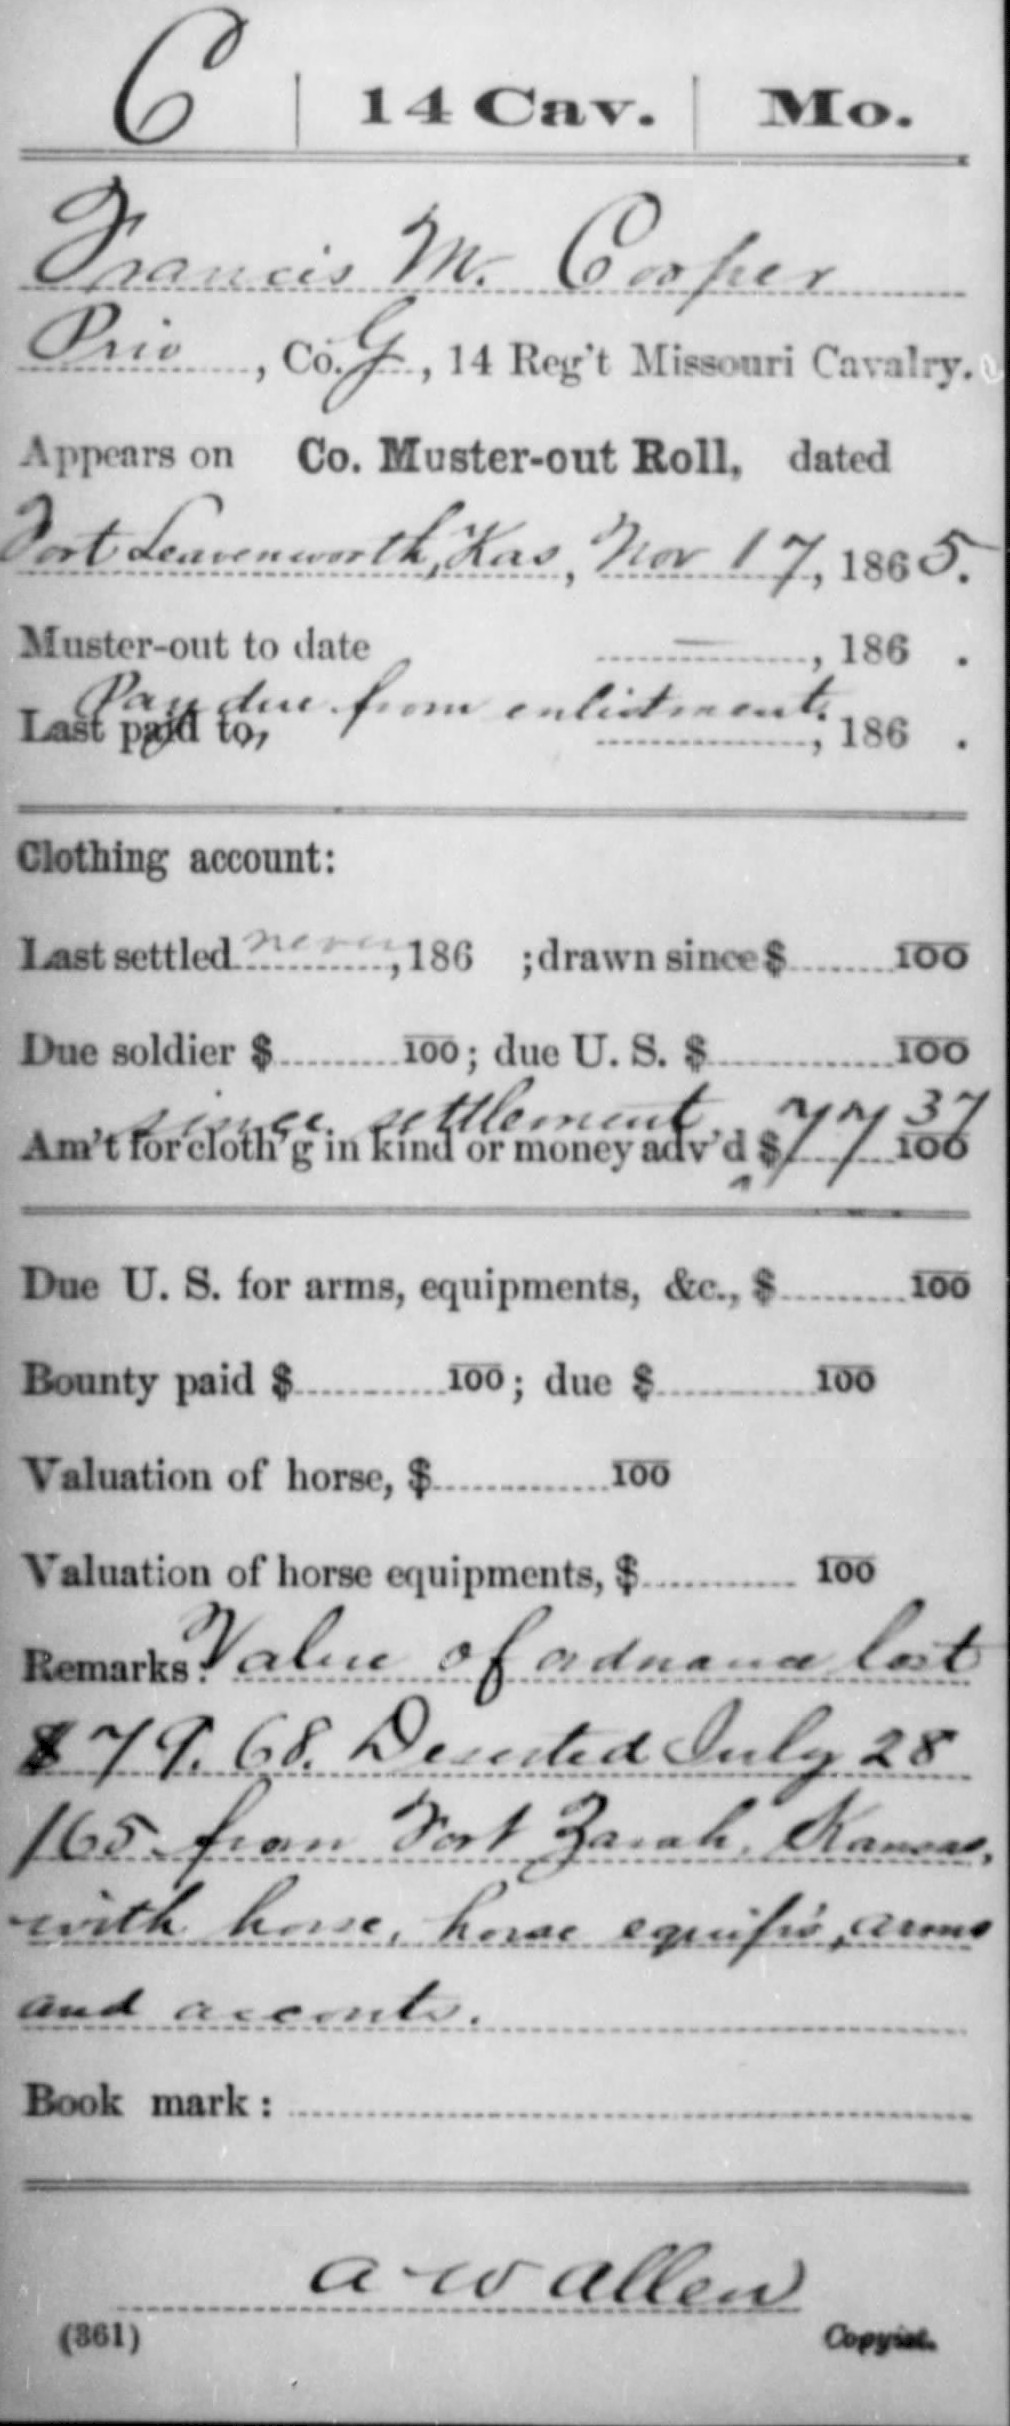 C | 14 Cav. | Mo.
Francis M. Cooper
Priv, Co. G, 14 Reg't Missouri Cavalry.
Appears on Co. Muster-out Roll, dated
Fort Leavenworth, Kas, Nov 17, 1865.
Muster-out to date —, 186 .
Pay due from enlistment.
Last paid to, , 186 .
Clothing account:
Last settled never, 186 ; drawn since $ 100
Due soldier $ 100; due U. S. $ 100
since settlement 77 37
Am't for cloth'g in kind or money adv'd $ 100
Due U. S. for arms, equipments, &c., $ 100
Bounty paid $ 100; due $ 100
Valuation of horse, $ 100
Valuation of horse equipments, $ 100
Remarks: Value of ordnance lost
$79.68. Deserted July 28
/65 from Fort Zarah, Kansas,
with horse, horse equip's, arms
and accouts.
Book mark:
A W Allen
(361) Copyist.